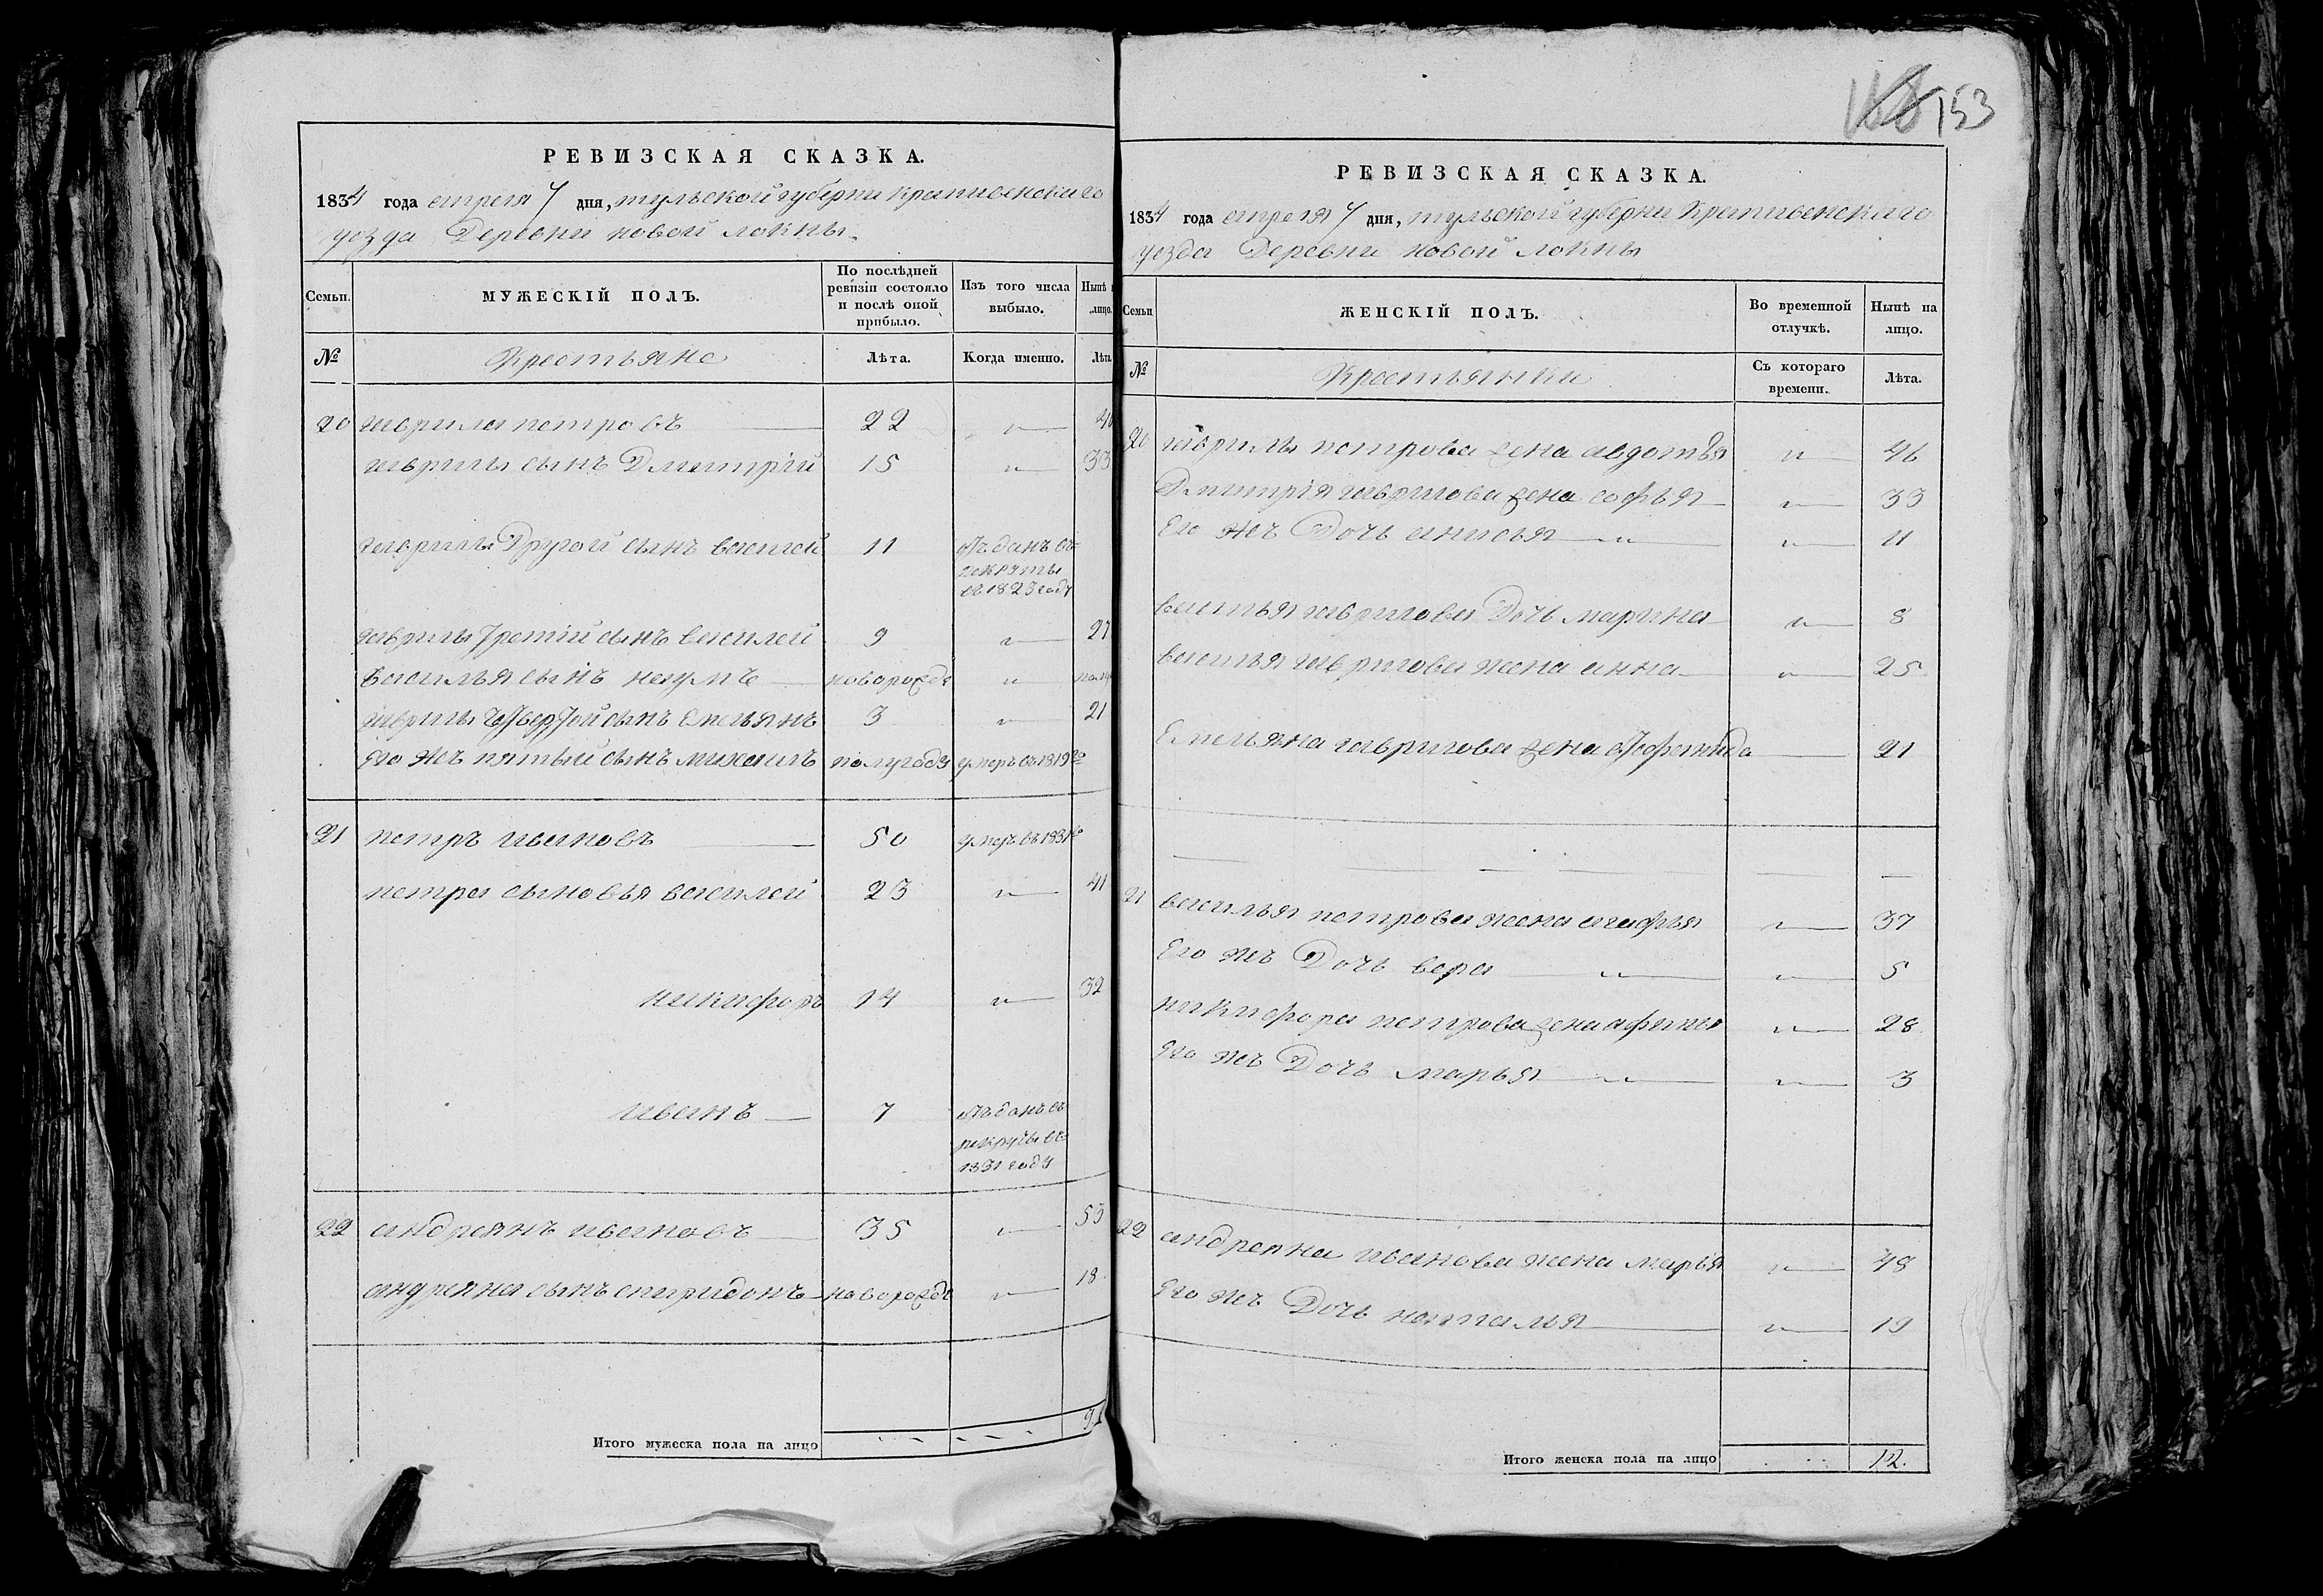 РЕВИЗСКАЯ СКАЗКА.
1834 года апреля 7 дня, тульской губерни крапивенскаго
уезда Деревни новой локны.
Семьи.
МУЖЕСКІЙ ПОЛЪ.
По послѣдней
ревизіи состояло
и послѣ оной
прибыло.
Изъ того числа
выбыло.
Нынѣ
лицо.
№
Крестьяне
Лѣта.
Когда именно.
Лѣта
20 гаврила петровъ 22 4
гаврилы сынъ Дмитрій 15 33
гаврилы Другой сынъ василей 11 отъданъ въ
рекруты
въ 1825 году
гаврилы Третій сынъ василей 9 27
василья сынъ наумъ новорожде
гаврилы четвертой сынъ Емельянъ 3 21
Его жъ пятый сынъ михаилъ полугода умеръ въ 1819 го
21 петръ ивановъ 50 умеръ въ 1831 го
петра сыновья василей 23 41
никифоръ 14 32
иванъ 7 отъданъ въ
рекруты въ
1831 году
22 андреянъ ивановъ 35 53
андреяна сынъ спиридонъ новорожде 18
Итого мужеска пола на лицо 9
153
РЕВИЗСКАЯ СКАЗКА.
1834 года апреля 7 дня, тульской губерни Крапивенскаго
уезда Деревни новой локны
Семьи
ЖЕНСКІЙ ПОЛЪ.
Во временной
отлучкѣ.
Нынѣ на
лицо.
№
Крестьянки
Съ котораго
времени.
Лѣта.
20 гаврилы петрова жена авдотья 46
Дмитрія гаврилова жена софья 33
Его жъ Дочь анисья 11
василья гаврилова Дочь марина 8
василья гаврилова жена анна 25
Емельяна гаврилова жена 21
21 василья петрова жена агафья 37
Его жъ Дочь вера 5
никифора петрова жена афимья 28
Его жъ Дочь марья 3
22 андреяна иванова жена марья 48
Его жъ Дочь наталья 19
Итого женска пола на лицо 12.